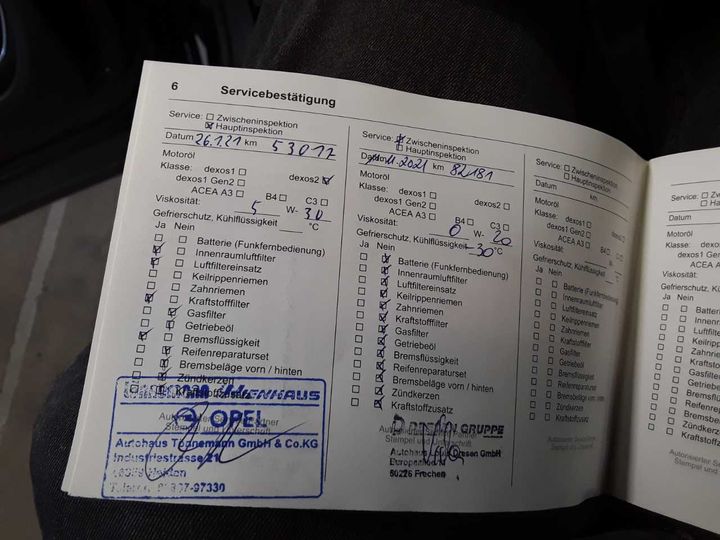 6 Servicebestätigung
Service: Zwischeninspektion
Hauptinspektion
Datum 26.1.21 km 53017
Motoröl
Klasse: dexos1 dexos2
dexos1 Gen2 B4 C3
ACEA A3
Viskosität: 5 W- 30
Gefrierschutz, Kühlflüssigkeit °C
Ja Nein
Batterie (Funkfernbedienung)
Innenraumluftfilter
Luftfiltereinsatz
Keilrippenriemen
Zahnriemen
Kraftstofffilter
Gasfilter
Getriebeöl
Bremsflüssigkeit
Reifenreparaturset
Bremsbeläge vorn / hinten
Zündkerzen
Kraftstoffzusatz
OPEL
Autohaus Tönnemann GmbH & Co.KG
Industriestrasse 21
Service: Zwischeninspektion
Hauptinspektion
Datum 11.2021 km 82181
Motoröl
Klasse: dexos1 dexos2
dexos1 Gen2
ACEA A3 B4 C3
Viskosität: 0 W- 20
Gefrierschutz, Kühlflüssigkeit -30 °C
Ja Nein
Batterie (Funkfernbedienung)
Innenraumluftfilter
Luftfiltereinsatz
Keilrippenriemen
Zahnriemen
Kraftstofffilter
Gasfilter
Getriebeöl
Bremsflüssigkeit
Reifenreparaturset
Bremsbeläge vorn / hinten
Zündkerzen
Kraftstoffzusatz
GRUPPE
Stempel und Unterschrift
Autohaus Dresen GmbH
50226 Frechen
Service: Zwischeninspektion
Hauptinspektion
Datum km
Motoröl
Klasse: dexos1 dexos2
dexos1 Gen2
ACEA A3 B4 C3
Viskosität: W-
Gefrierschutz, Kühlflüssigkeit °C
Ja Nein
Batterie (Funkfernbedienung)
Innenraumluftfilter
Luftfiltereinsatz
Keilrippenriemen
Zahnriemen
Kraftstofffilter
Gasfilter
Getriebeöl
Bremsflüssigkeit
Reifenreparaturset
Bremsbeläge vorn / hinten
Zündkerzen
Kraftstoffzusatz
Autorisierter Service Partner
Stempel und Unterschrift
Service:
Datum
Motoröl
Klasse: dexos1
dexos1 Gen2
ACEA A3
Viskosität:
Gefrierschutz, Kühlflüssig
Ja Nein
Batterie
Innenra
Luftfilte
Keilripp
Zahnrie
Kraftsto
Gasfilte
Getrieb
Bremsflü
Reifenre
Bremsbe
Zündkerz
Kraftstoff
Autorisierter Se
Stempel und